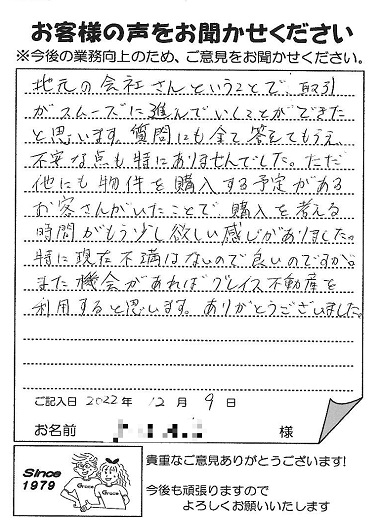 お客様の声をお聞かせください
※今後の業務向上のため、ご意見をお聞かせください。
地元の会社さんということで、取引
がスムーズに進んでいくことができた
と思います。質問にも全て答えてもらえ、
不安な点も特にありませんでした。ただ
他にも物件を購入する予定がある
お客さんがいたことで、購入を考える
時間がもう少し欲しい感じがありました。
特に現在不満はないので良いのですが。
また機会があればグレイス不動産を
利用すると思います。ありがとうございました。
ご記入日 2022 年 12 月 9 日
お名前 様
Since
1979
Grace
Grace
貴重なご意見ありがとうございます!
今後も頑張りますので
よろしくお願いいたします